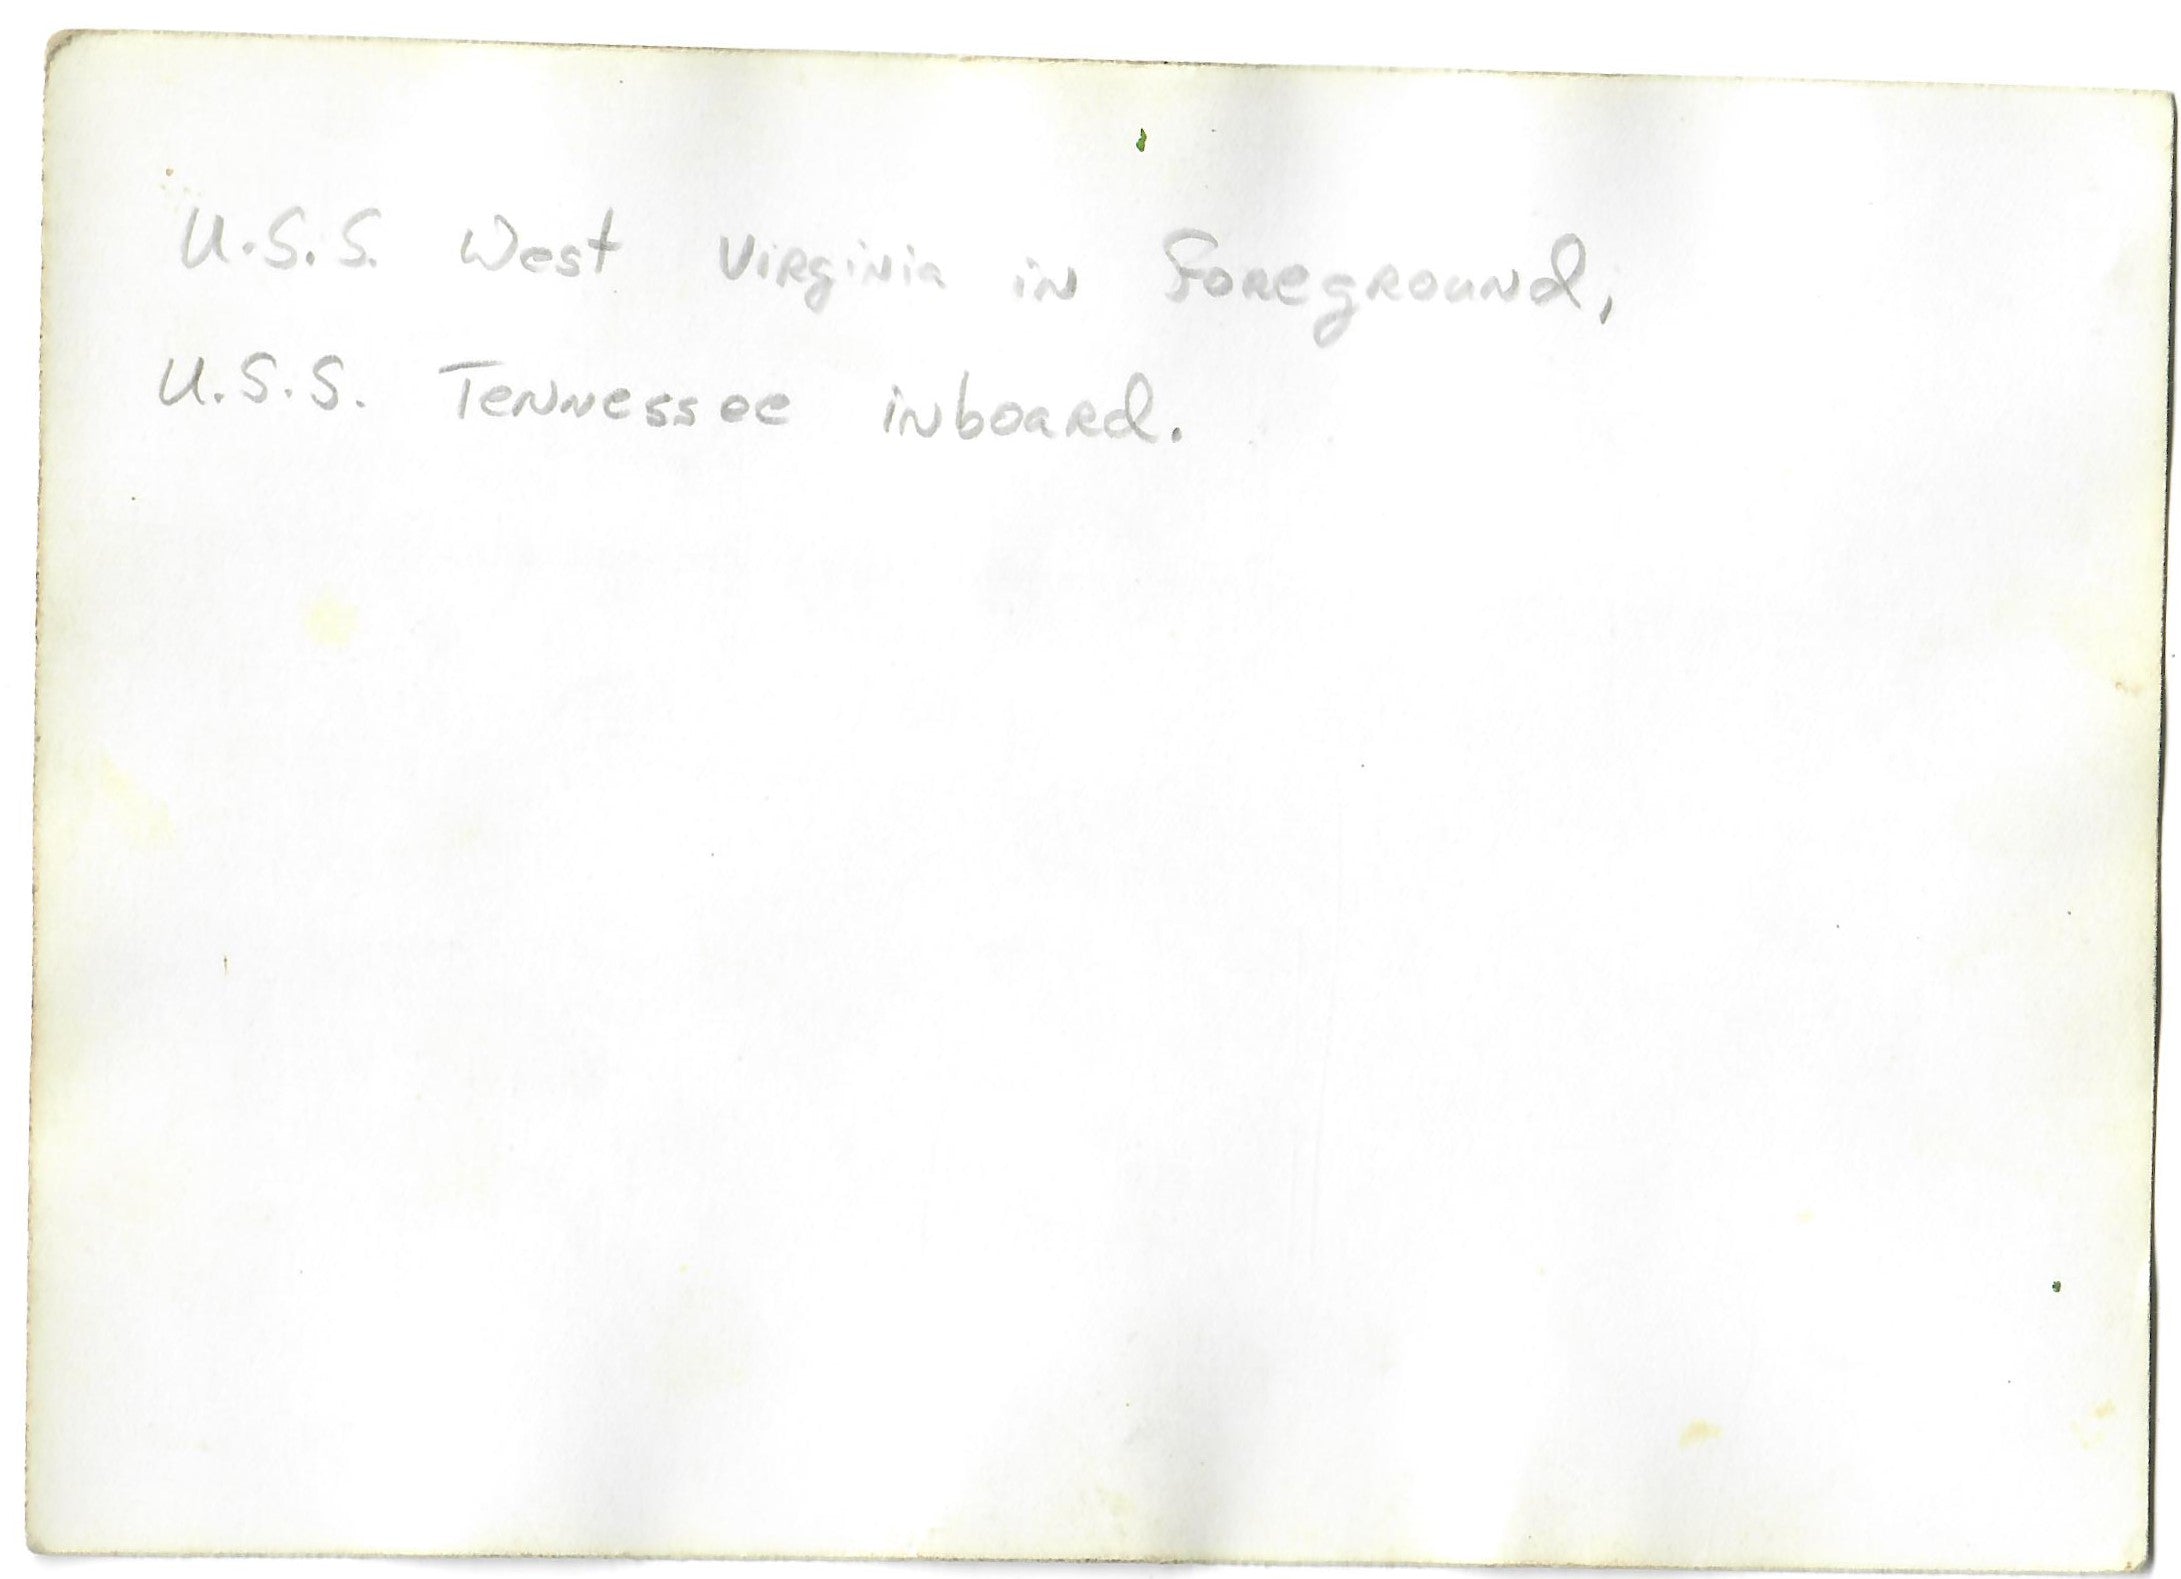 U.S.S. West Virginia in foreground,
U.S.S. Tennessee inboard.